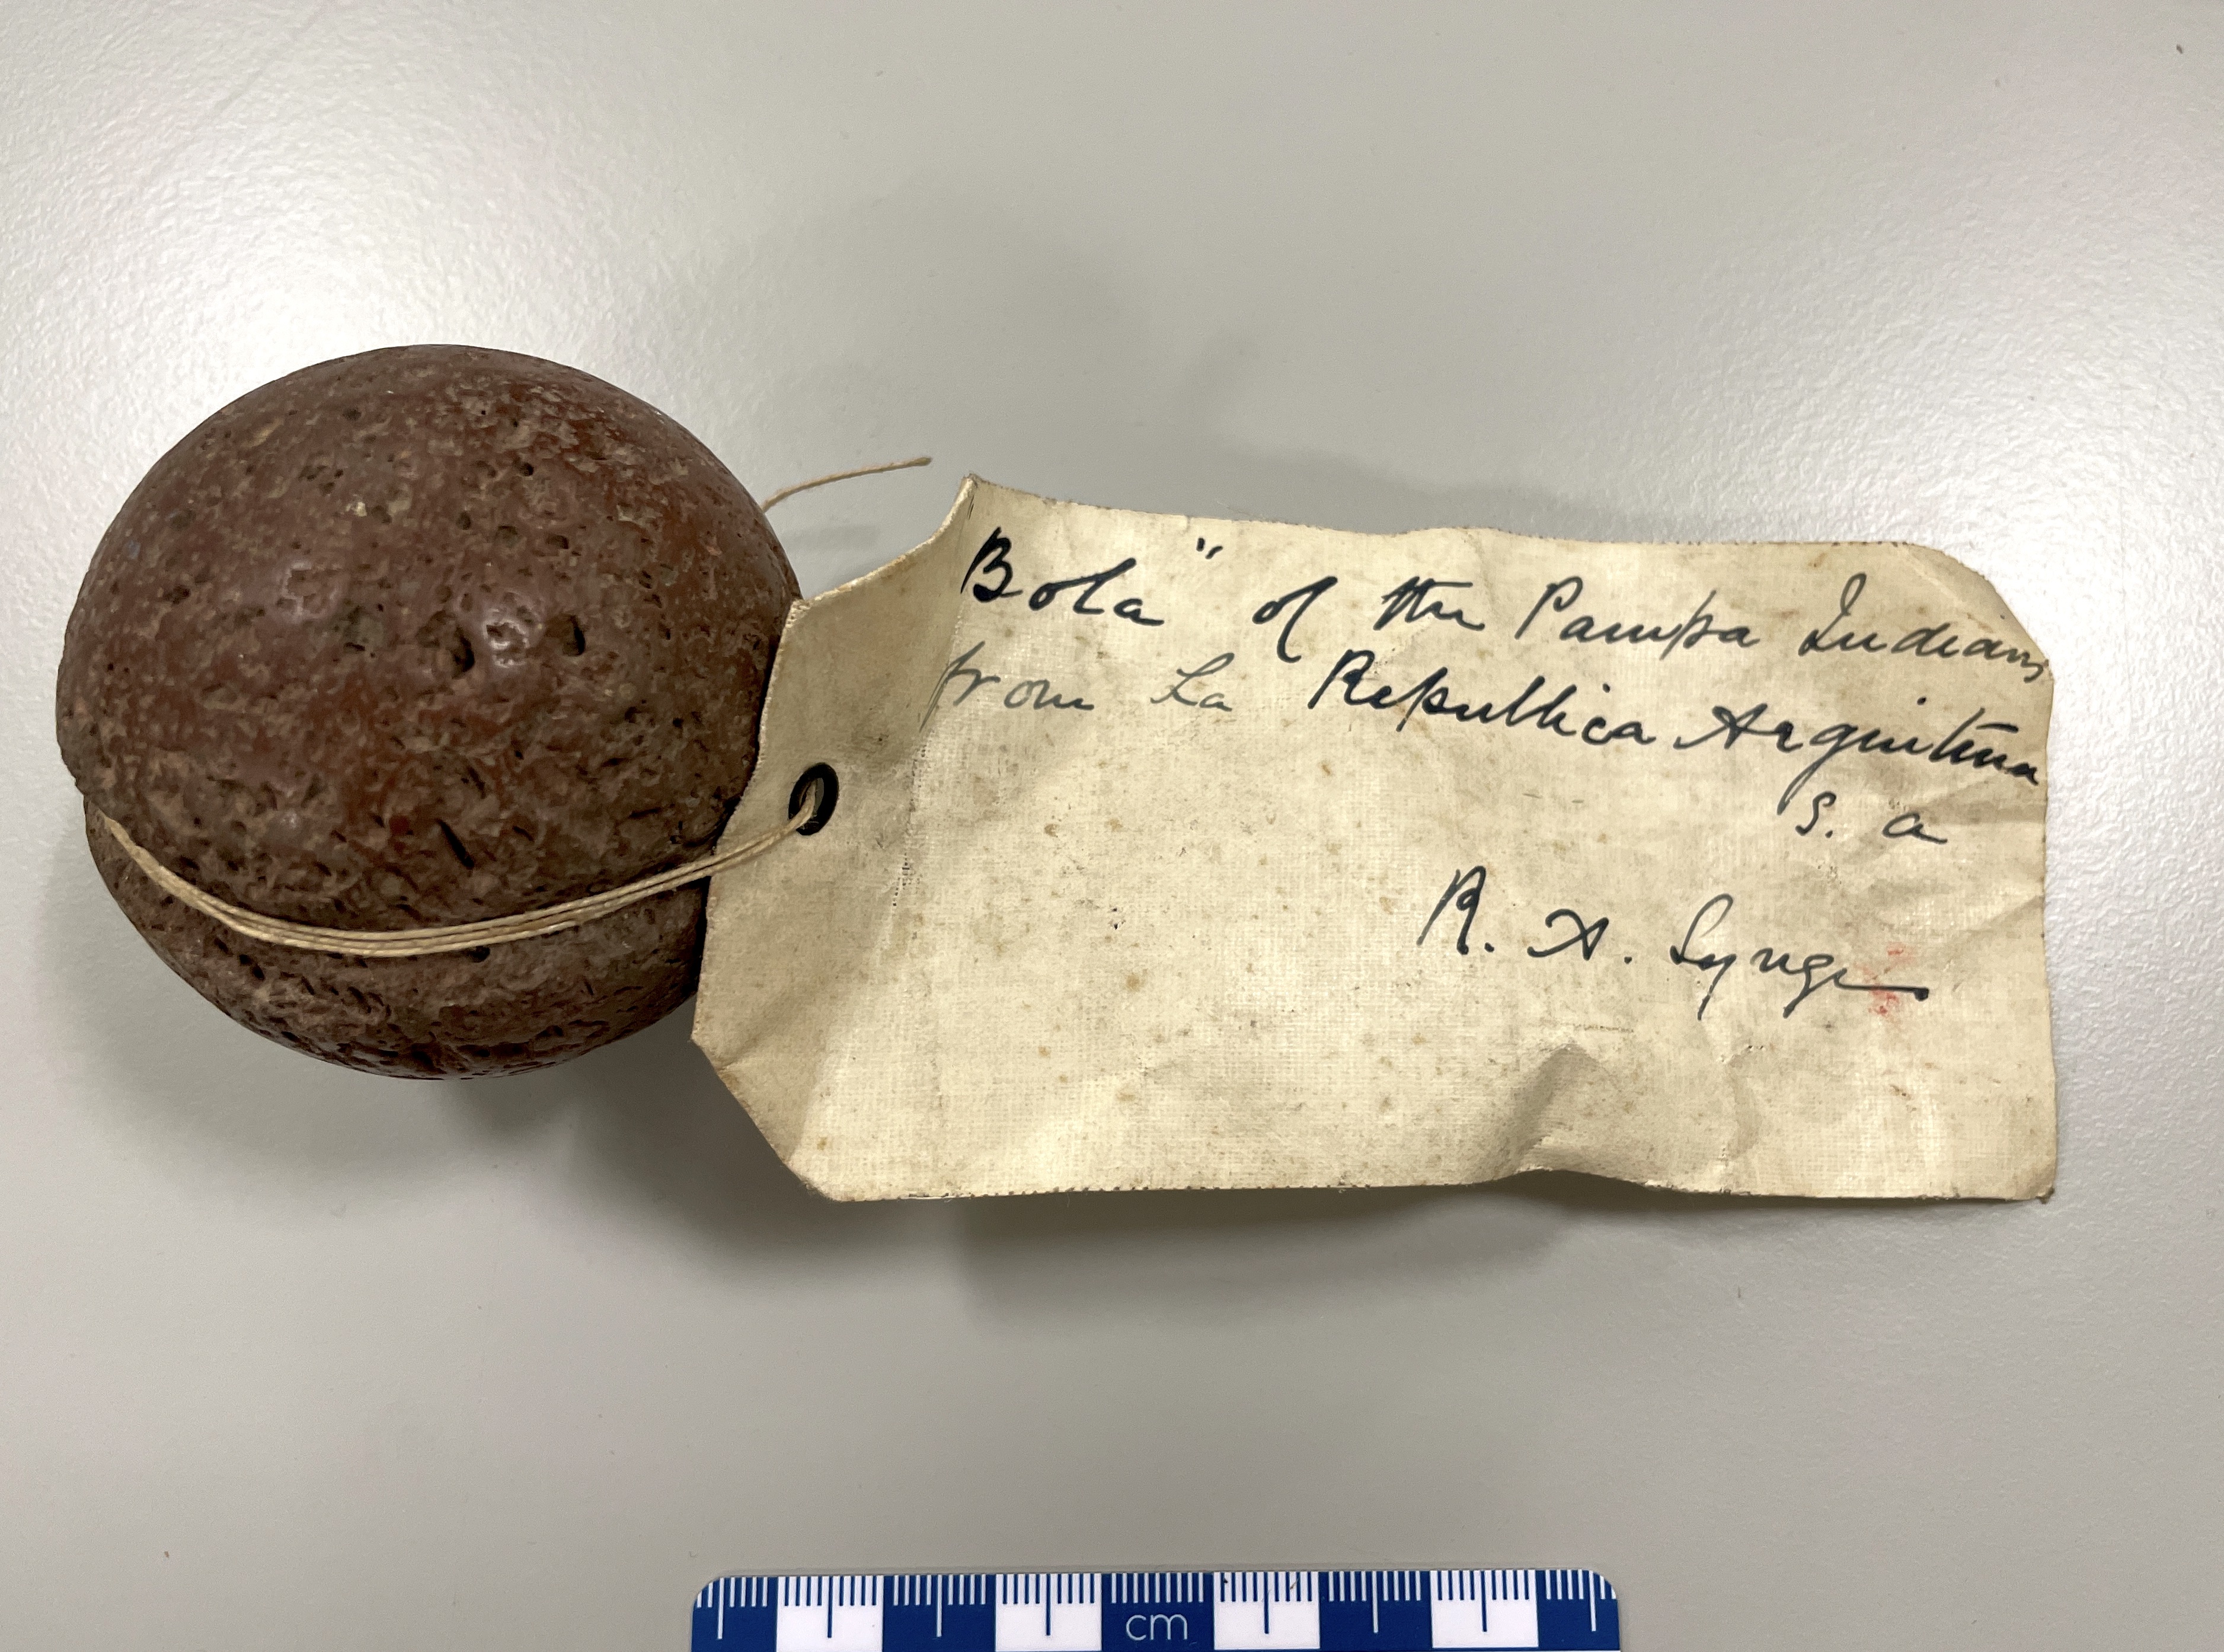 Bola" of the Pampa Indians
from La Republica Argentina
S. a
R. A. Synge
cm